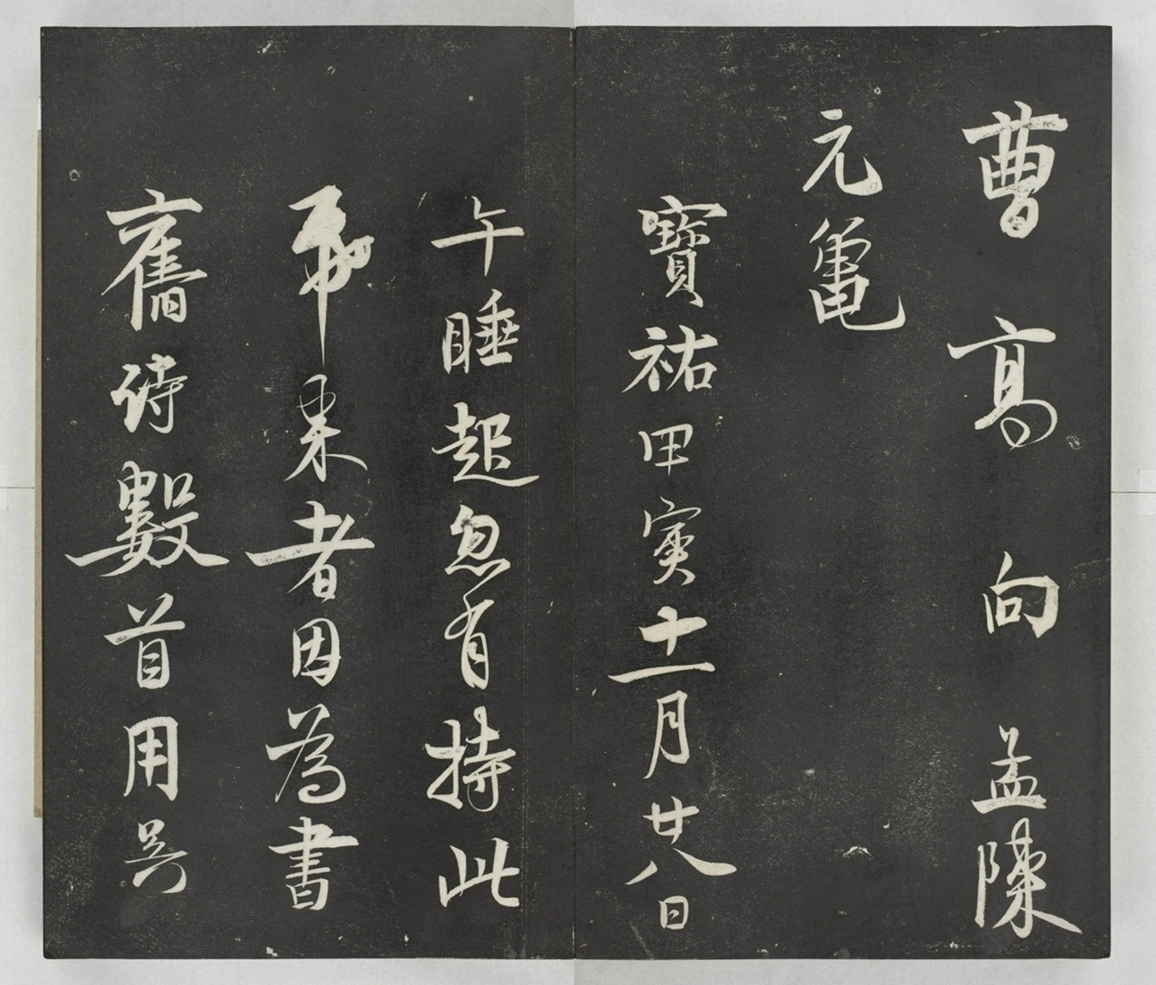 曹高向孟陳
元龜
寶祐甲寅十一月廿八日
午睡起忽有持此
帋来者因為書
舊詩數首用吳